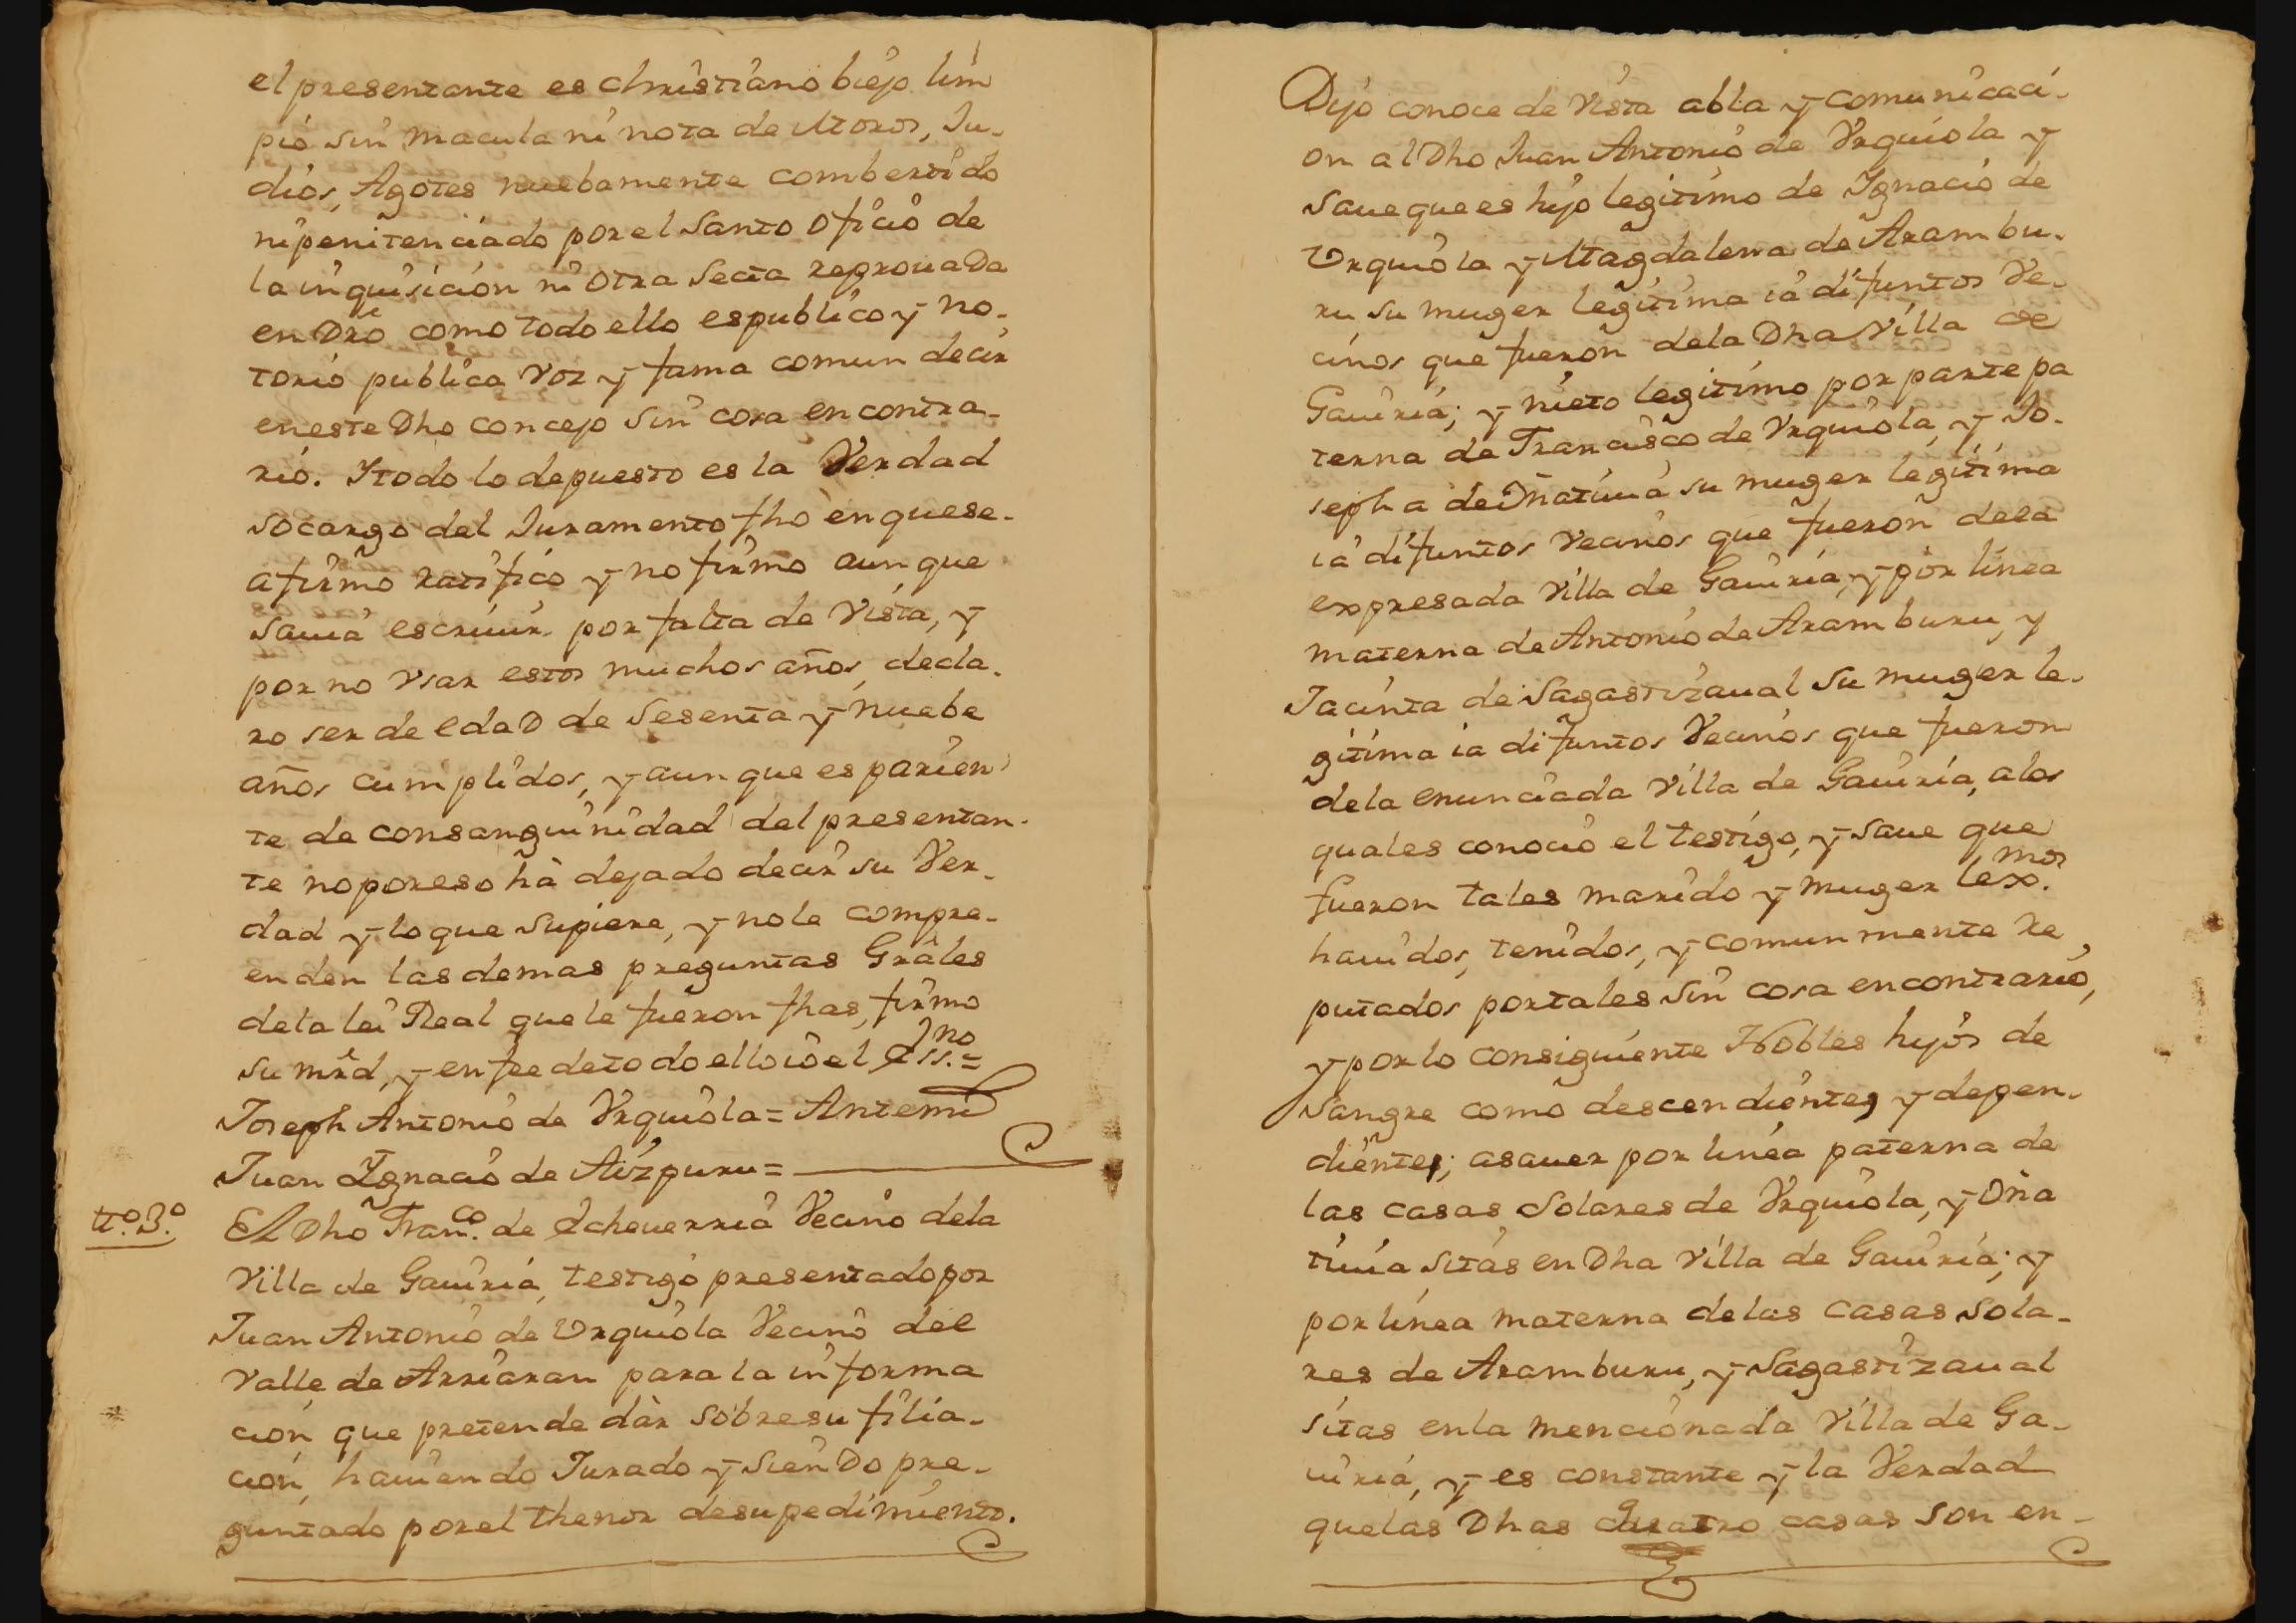 el presentante es christiano biejo lim
pio sin macula ni nota de Moros, Ju-
dios, Agotes nuebamente combertido
ni penitenciado por el Santo Oficio de
la inquisicion ni otra Secta reprouada
en Dro como todo ello es publico y no-
torio publica Voz y fama comun decir
en este Dho concejo sin cosa en contra-
rio. Y todo lo depuesto es la Verdad
so cargo del Juramento fho en que se-
afirmo ratifico y no firmo aun que
sauia escriuir por falta de Vista, y
por no Vsar estos muchos años, decla-
ro ser de edaD de Sesenta y nuebe
años cumplidos, y aun que es parien
te de consanguinidad del presentan-
te no por eso hà dejado decir su Ver-
dad y lo que Supiere, y no le compre-
enden las demas preguntas Grâles
de la lei Real que le fueron fhas, firmo
su mrd, y en fee de todo ello io el Ess.no=
Joseph Antonio de Vrquiola = Antemi
Juan Ygnacio de Aizpuru =
tt.o 3.o
El Dho Fran.co de Echeuerria Vecino dela
Villa de Gauiria, testigo presentado por
Juan Antonio de Vrquiola Vecino del
Valle de Arriaran para la informa
cion que pretende dàr sobre su filia-
cion, hauiendo Jurado y sienDo pre-
guntado por el thenor de su pedimiento.
Dijo conoce de Vista abla y comunicaci-
on al Dho Juan Antonio de Vrquiola y
saue que es hijo legitimo de Ygnacio de
Vrquiola y Magdalena de Arambu-
ru su muger legitima ia difuntos Ve-
cinos que fueron dela Dha Villa de
Gauiria; y nieto legitimo por parte pa
terna de Francisco de Vrquiola, y Jo-
sepha de Oñatiuia su muger legitima
ia difuntos Vecinos que fueron dela
expresada Villa de Gauiria, y por linea
materna de Antonio de Aramburu, y
Jacinta de Sagastizaual su muger le-
gitima ia difuntos Vecinos que fueron
dela enunciada Villa de Gauiria, alos
quales conocio el testigo, y saue que
fueron tales marido y muger lex.mos
hauidos, tenidos, y comunmente re
putados por tales sin cosa en contrario,
y por lo consiguiente Nobles hijos de
Sangre como descendientes y depen-
dientes; asauer por linea paterna de
las casas Solares de Vrquiola, y Oña
tiuia sitas en Dha Villa de Gauiria; y
por linea materna delas casas Sola-
res de Aramburu, y Sagastizaual
sitas en la mencionada Villa de Ga-
uiria, y es constante y la Verdad
que las Dhas Quatro casas son en-